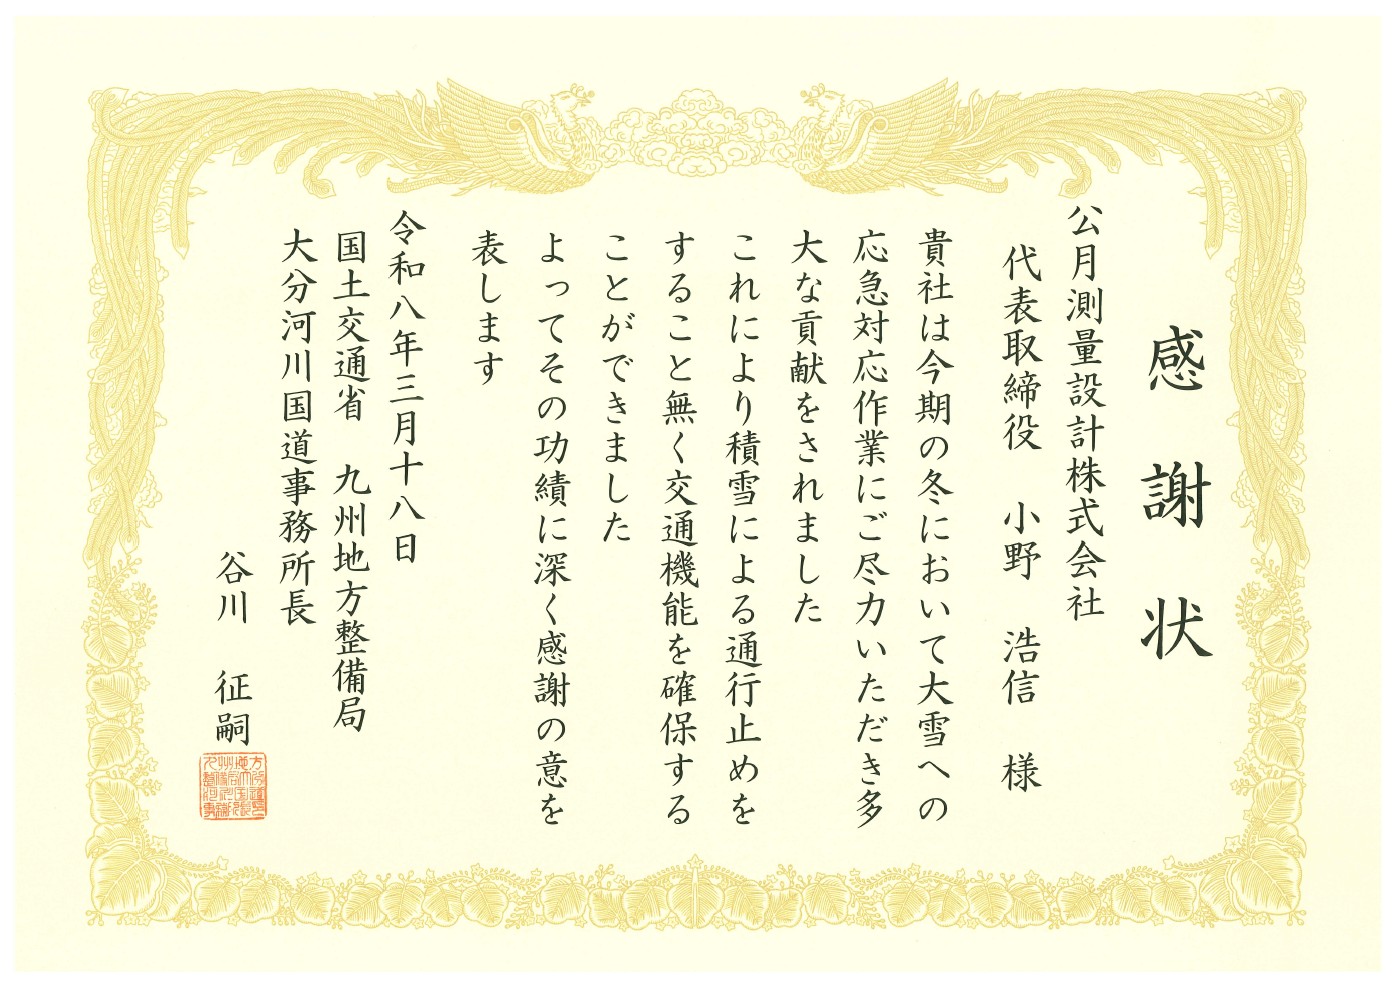 感謝状
公月測量設計株式会社
代表取締役　小野　浩信　様
貴社は今期の冬において大雪への
応急対応作業にご尽力いただき多
大な貢献をされました
これにより積雪による通行止めを
すること無く交通機能を確保する
ことができました
よってその功績に深く感謝の意を
表します
令和八年三月十八日
国土交通省　九州地方整備局
大分河川国道事務所長
谷川　征嗣